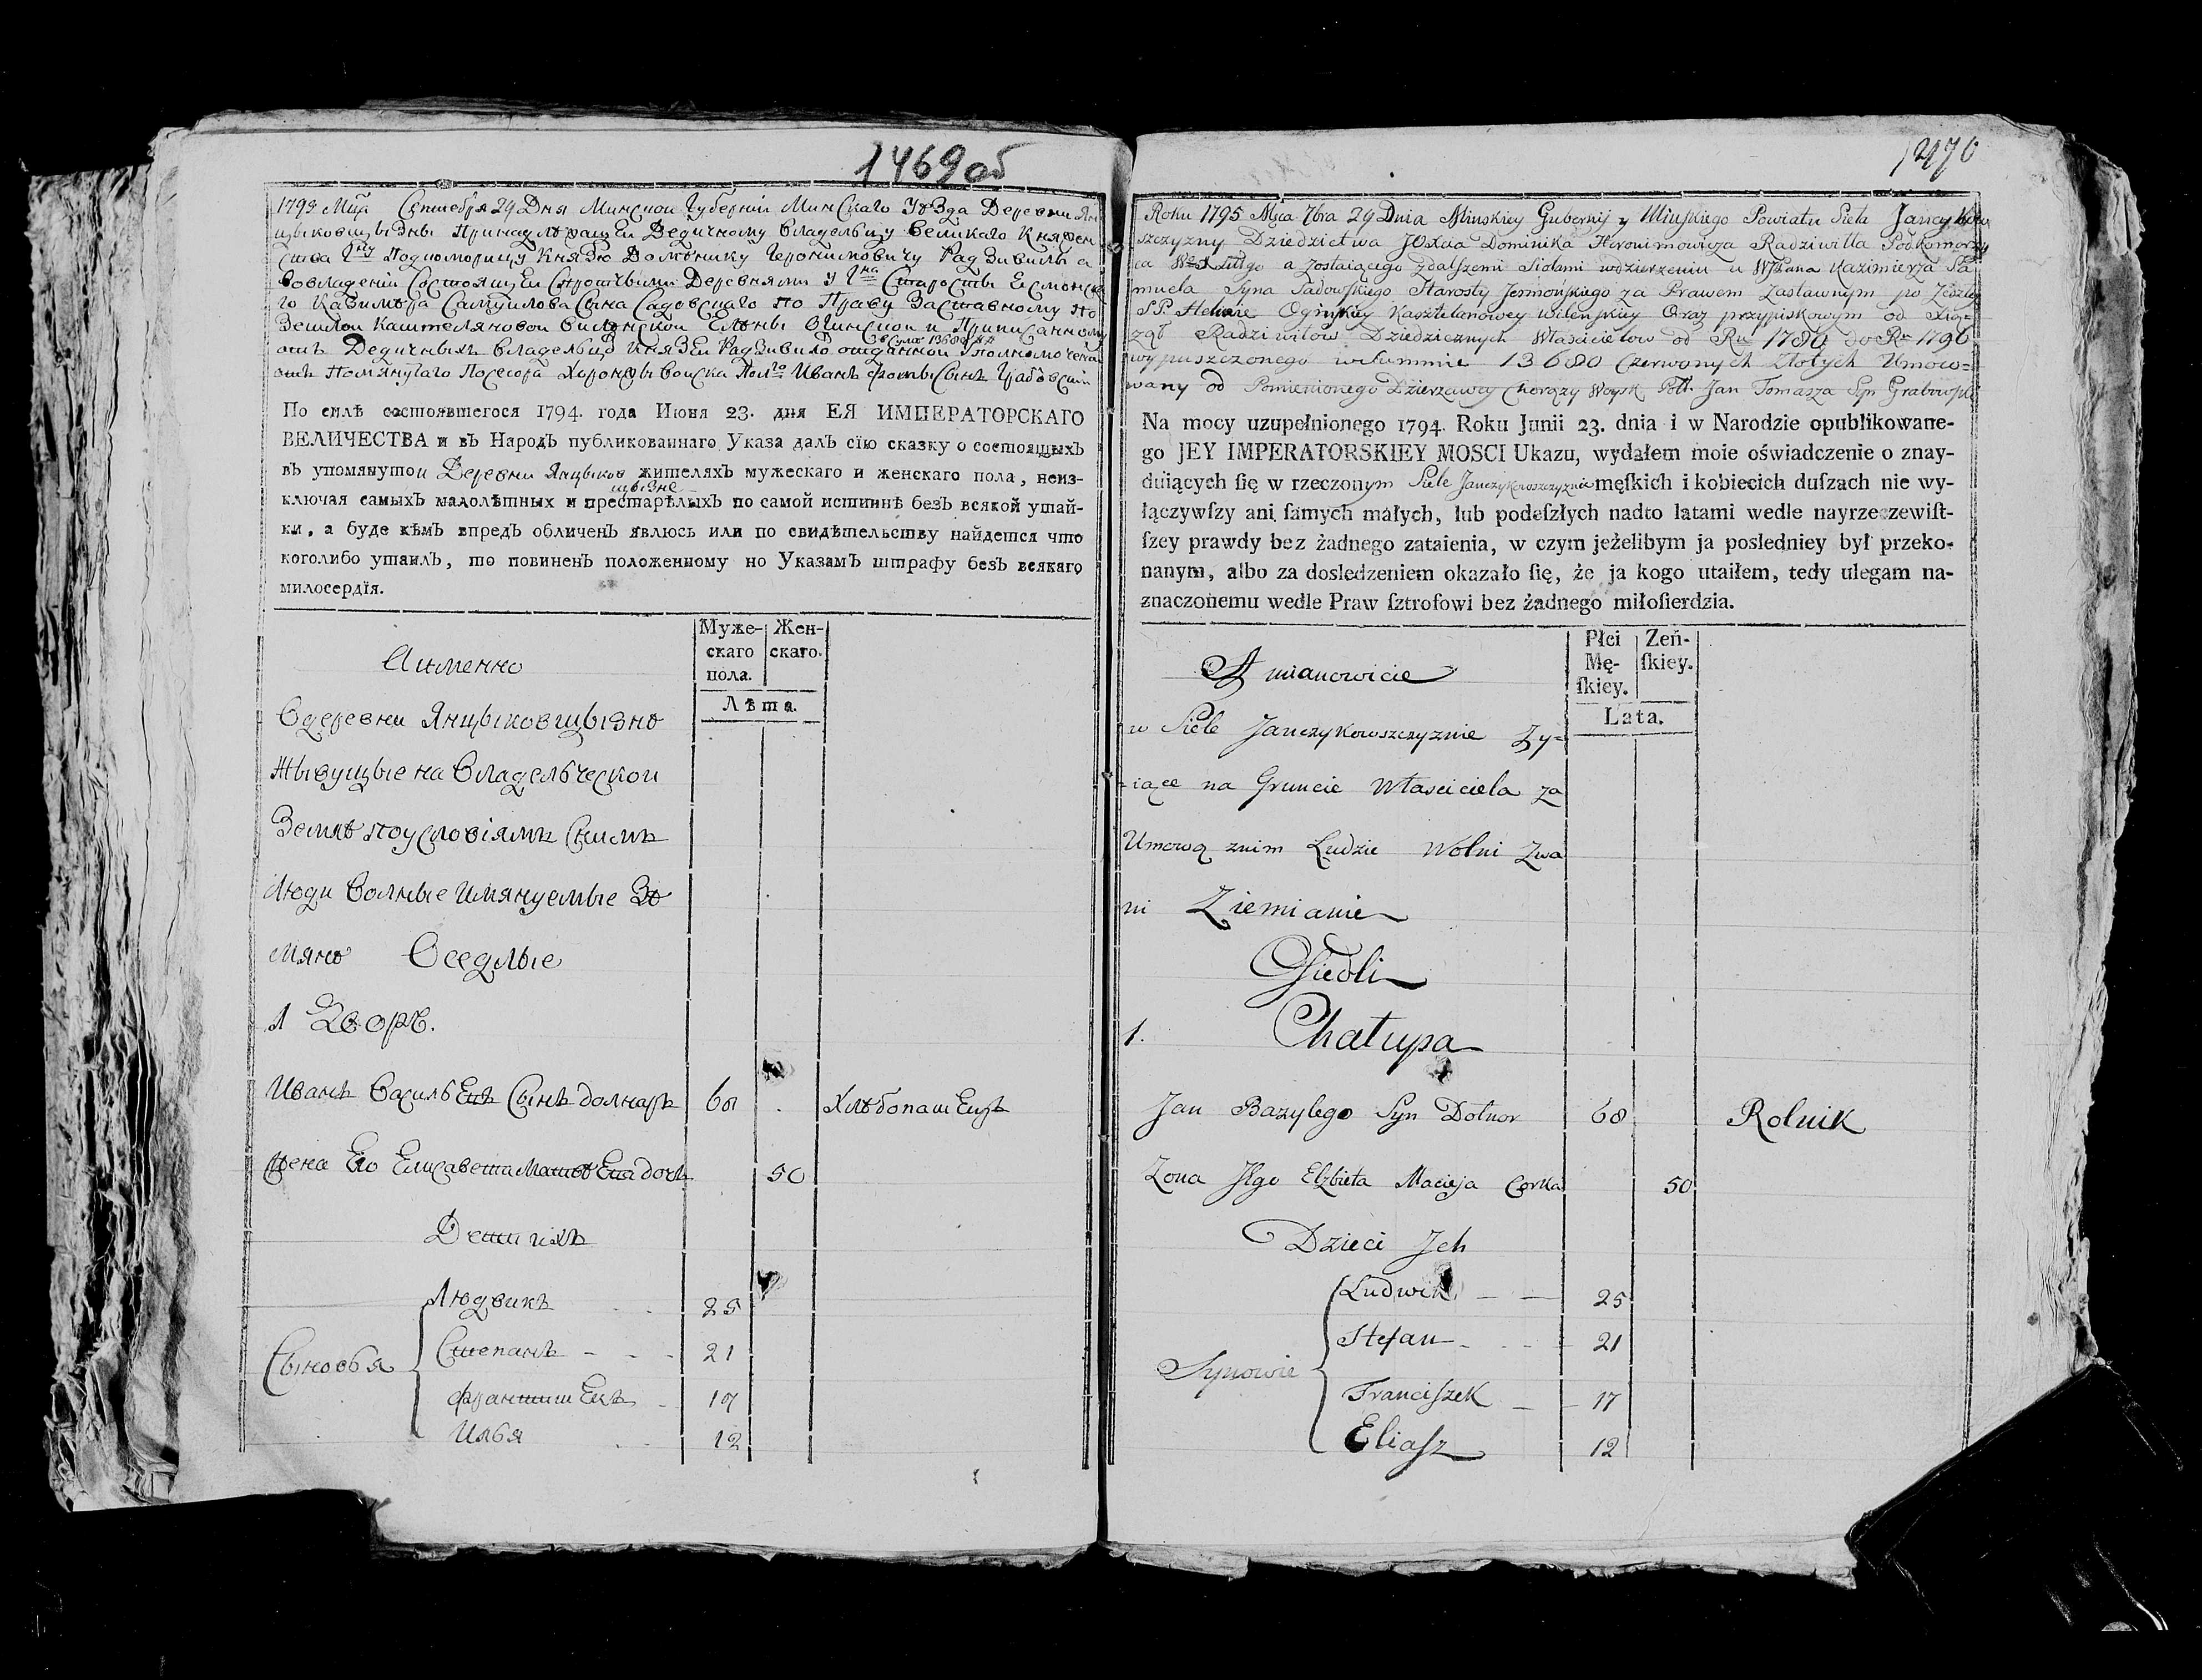 1469об
1795 Мца Сентебря 29 Дня Минской Губернии Минскаго Уѣзда Деревни Ян
цыковщызны Принадлѣжащей Дедичному Владельцу Великаго Княжен
ства Подкоморицу Князю Доминику Геронимовичу Радзивилу а
Вовладении Состоящей Спротчыми Деревнями У Гна Старосты Есмонск
го Казимѣра Самуилова Сына Садовскаго по Праву Заставному по
Зешлой Каштеляновой Виленской Елены Огинской и Приписанному
в Суме 13680
отъ Дедичныхъ Владельцо Князей Радзивило отданной Уполномочена
отъ Помянутаго Посесора Хоронжы Войска Пол Иванъ Фомы Сынъ Грабовский
По силѣ состоявшегося 1794. года Июня 23. дня ЕЯ ИМПЕРАТОРСКАГО
ВЕЛИЧЕСТВА и въ Народъ публикованнаго Указа далъ сїю сказку о состоящыхъ
въ упомянутои Деревни Янцыков жителяхъ мужескаго и женскаго пола, неиз-
щызне
ключая самыхъ малолѣтных и престарѣлыхъ по самой истиннѣ безъ всякой утай-
ки, а буде кѣмъ впредъ обличенъ явлюсь или по свидѣтельству найдется что
коголибо утаилъ, то повиненъ положенному по Указамъ штрафу безъ всякаго
милосердїя.
Муже-
скаго
пола.
Жен-
скаго.
Лѣта.
Аименно
Вдеревни Янцыковщызнѣ
Жывущые на Владельческой
Землѣ поусловіямъ Снимъ
Люди Волные Имянуемые Зѣ
мянѣ Оседлые
1 Дворъ.
Иванъ Васильевъ Сынъ Долнаръ 68 . Хлѣбопашецъ
Жена Его Елисавета Матѣева дочь 50
Дети ихъ
Сыновья
Людвикъ 25
Степанъ 21
Францишекъ 17
Илья 12
1470
Roku 1795 Mca 7bra 29 Dnia Minskiey Gubernij y Minskiego Powiatu Sieła Janczykow
szczyzny Dziedzictwa JOXcia Dominika Hieronimowicza Radziwiłła Podkomorzy
ca WX Litgo a zostaiącego zdalszemi Siołami wdzierzeniu u WJPana Kazimierza Sa
muela Syna Sadowskiego Starosty Jesmońskiego za Prawem Zastawnym po Zeszłey
SP. Helenie Oginskiey Kasztelanowey Wilenskiey Oraz przypiskowym od Xią-
żąt Radziwiłów Dziedzicznych Właścicielow od Ru 1784 do Ru 1796
wypuszczonego w Summie 13680 Czerwonych Złotych Umoco=
wany od Pomienionego Dzierzawcy Chorąży Woysk Poll. Jan Tomasza Syn Grabowski
Na mocy uzupełnionego 1794. Roku Junii 23. dnia i w Narodzie opublikowane-
go JEY IMPERATORSKIEY MOSCI Ukazu, wydałem moie oświadczenie o znay-
duiących ſię w rzeczonym Siele Janczykowszczyznie męſkich i kobiecich duſzach nie wy-
łączywſzy ani ſamych małych, lub podeſzłych nadto latami wedle nayrzeczewiſt-
ſzey prawdy bez żadnego zataienia, w czym jeżelibym ja posledniey był przeko-
nanym, albo za dosledzeniem okazało ſię, że ja kogo utaiłem, tedy ulegam na-
znaczonemu wedle Praw ſztrofowi bez żadnego miłoſierdzia.
Płci
Mę-
ſkiey.
Zeń-
ſkiey.
Lata.
A mianowicie
w Siele Janczykowszczyznie Zy=
=iące na Gruncie Własciciela za
Umową znim Ludzie Wolni Zwa
ni Ziemianie
Osiedli
1. Chałupa
Jan Bazylego Syn Dołnor 68 Rolnik
Zona Jego Elzbieta Macieja Corka 50
Dzieci Jch
Synowie
Ludwik 25
Stefan 21
Franciſzek 17
Eliaſz 12